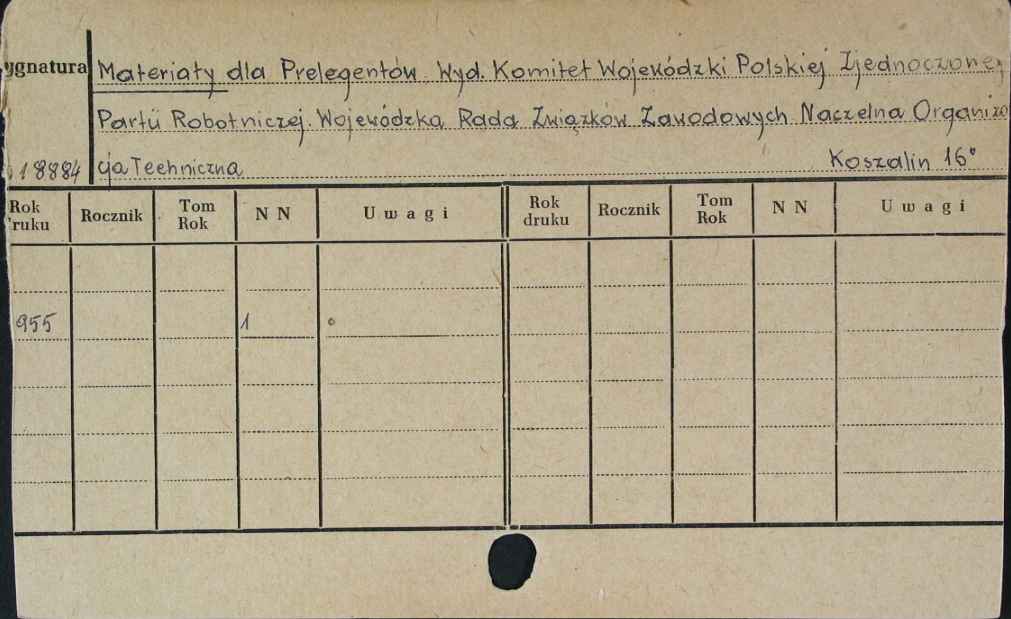 ygnatura Materiały dla Prelegentów Wyd. Komitet Wojewódzki Polskiej Zjednoczonej
Partii Robotniczej. Wojewódzka Rada Związków Zawodowych Naczelna Organiza
18884 cja Techniczna Koszalin 16°
Rok ruku Rocznik Tom Rok N N Uwagi Rok druku Rocznik Tom Rok N N Uwagi
955 1